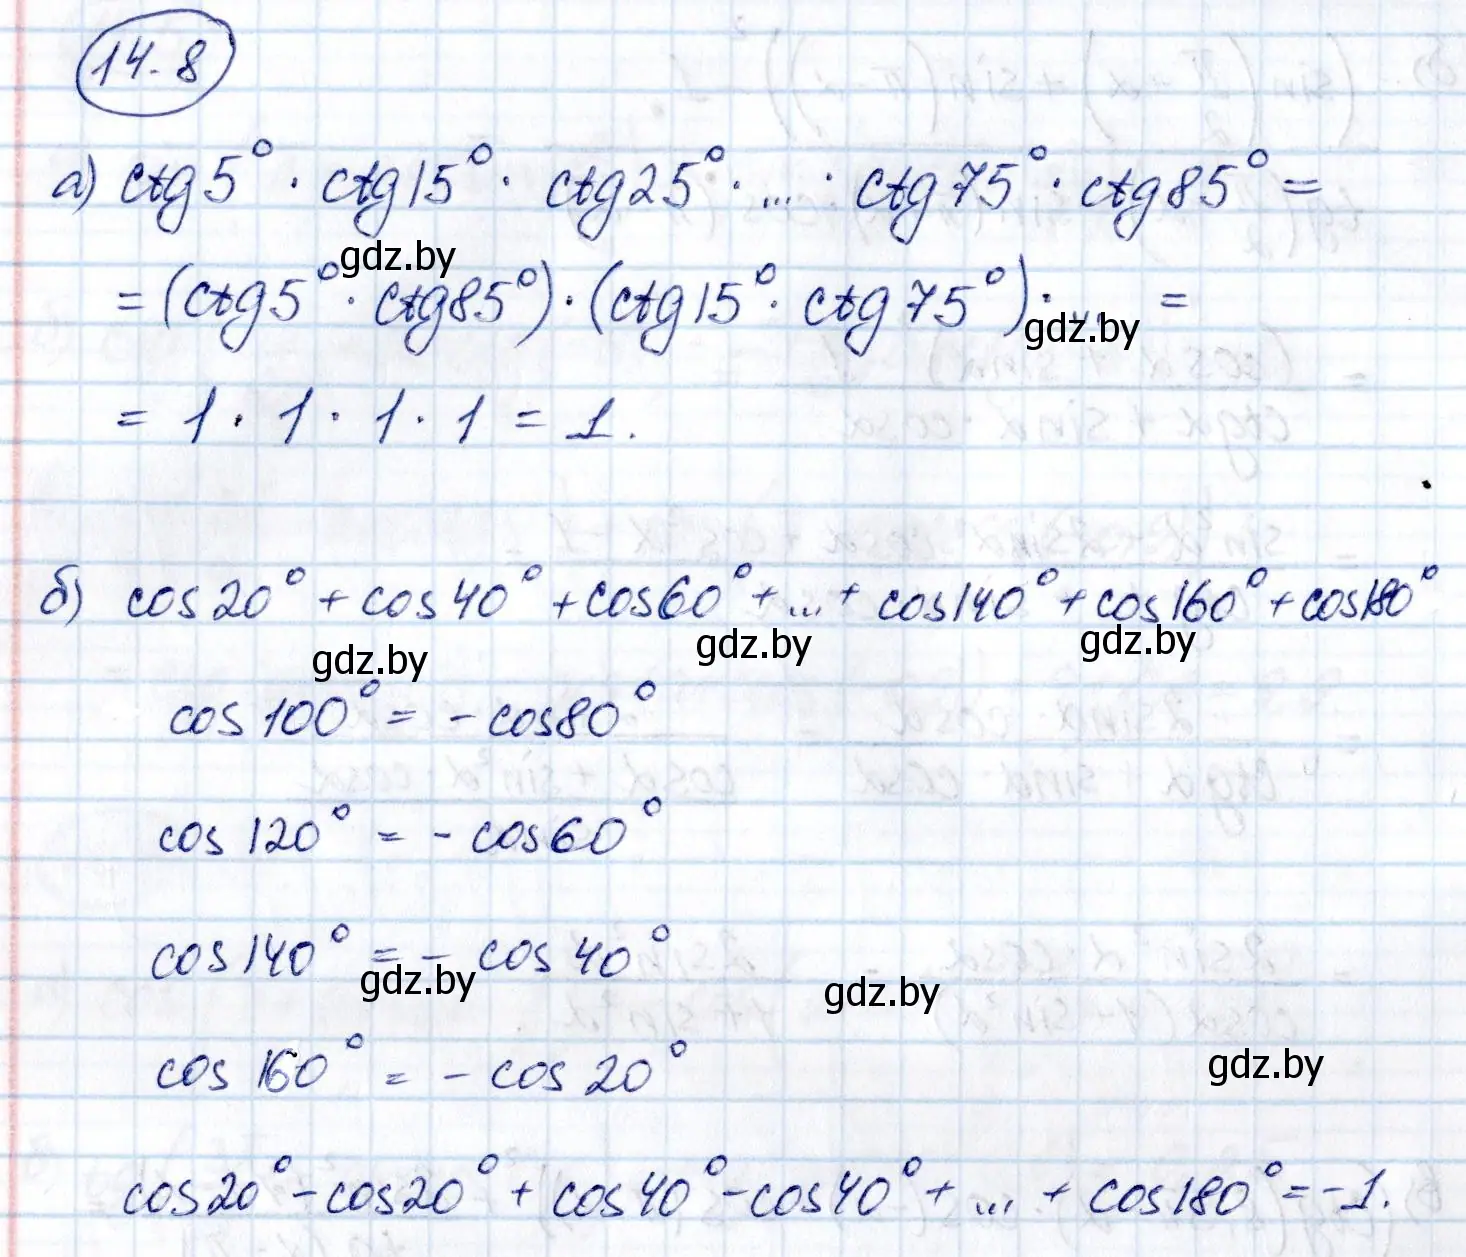 14.8
а) ctg 5° · ctg 15° · ctg 25° · ... · ctg 75° · ctg 85° =
gdz.by
= (ctg 5° · ctg 85°) · (ctg 15° · ctg 75°) · ... =
gdz.by
= 1 · 1 · 1 · 1 = 1.
б) cos 20° + cos 40° + cos 60° + ... + cos 140° + cos 160° + cos 180°
gdz.by gdz.by gdz.by
cos 100° = - cos 80°
cos 120° = - cos 60°
cos 140° = - cos 40°
gdz.by gdz.by
cos 160° = - cos 20°
gdz.by
cos 20° - cos 20° + cos 40° - cos 40° + ... + cos 180° = -1.